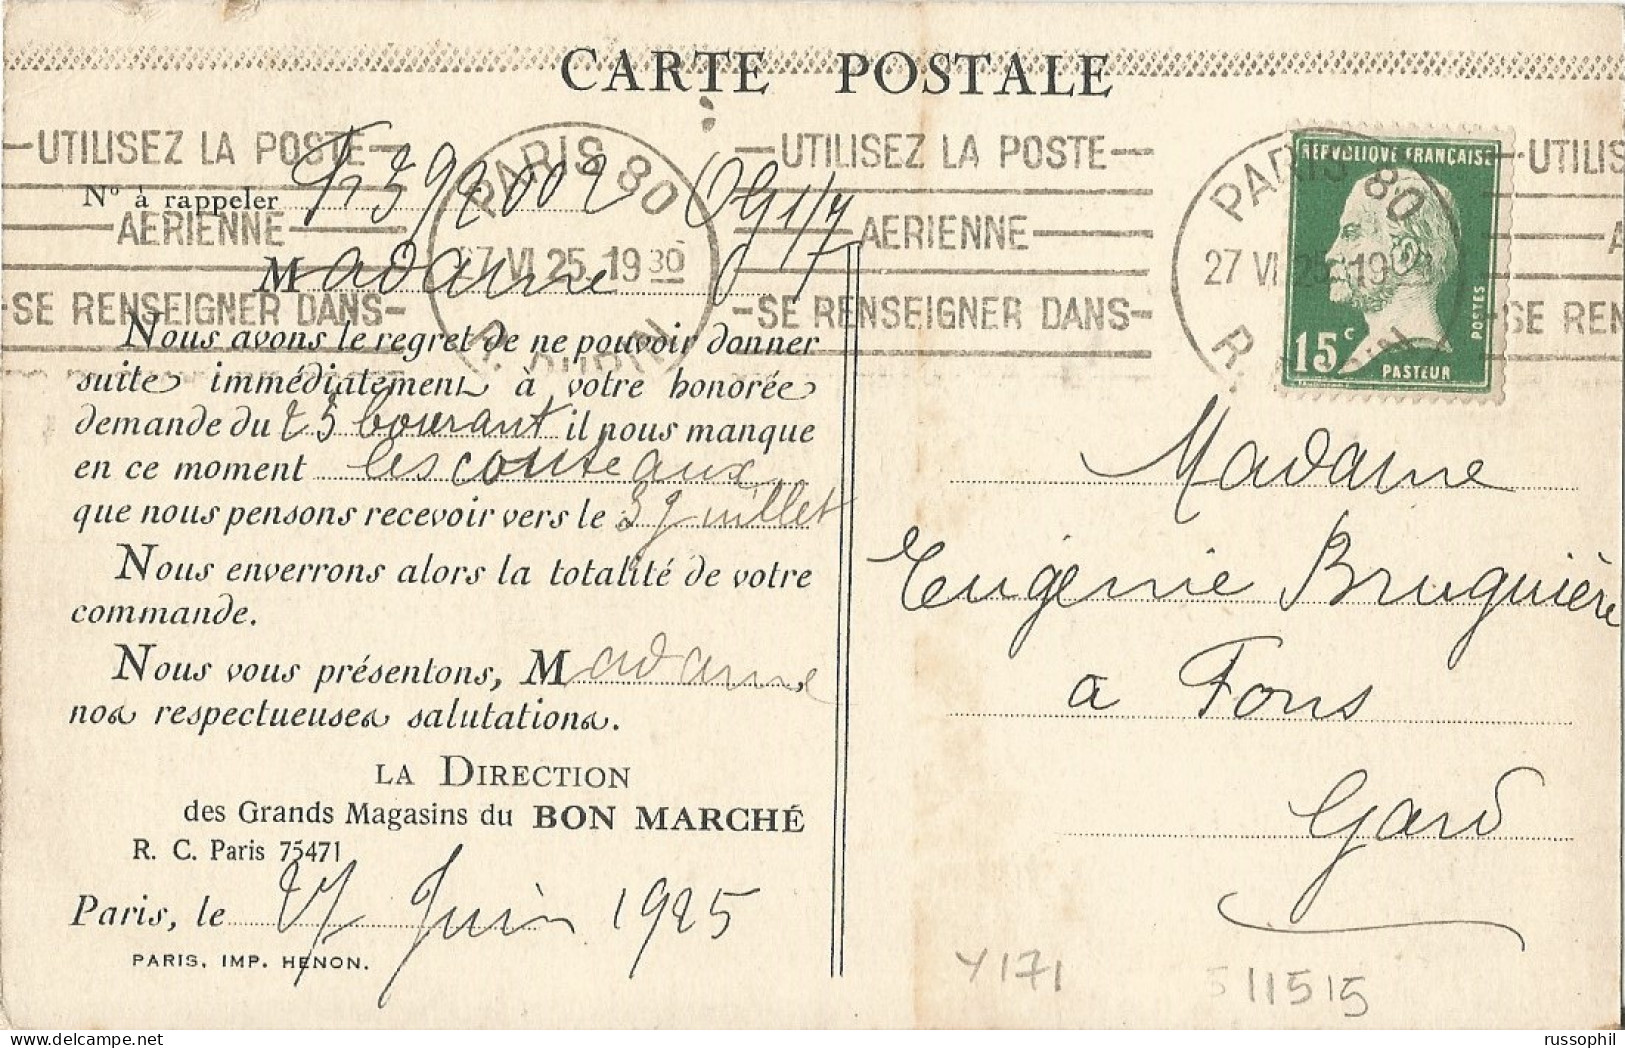 CARTE POSTALE
—UTILISEZ LA POSTE—
AERIENNE
—SE RENSEIGNER DANS—
PARIS 80
27 VI 25 1930
—UTILISEZ LA POSTE—
AERIENNE
—SE RENSEIGNER DANS—
PARIS 80
27 VI 25 19
—UTILIS
A
SE REN
REPVBLIQVE FRANCAISE
POSTES
15c
PASTEUR
N° à rappeler
Madame
Nous avons le regret de ne pouvoir donner
suite immédiatement à votre honorée
demande du 25 courant il nous manque
en ce moment les couteaux
que nous pensons recevoir vers le 3 Juillet
Nous enverrons alors la totalité de votre
commande.
Nous vous présentons, Madame
nos respectueuses salutations.
LA DIRECTION
des Grands Magasins du BON MARCHÉ
R. C. Paris 75471
Paris, le 27 Juin 1925
PARIS. IMP. HENON.
Madame
Eugénie Bruguière
a Fons
Gard
Y171
511515
russophil